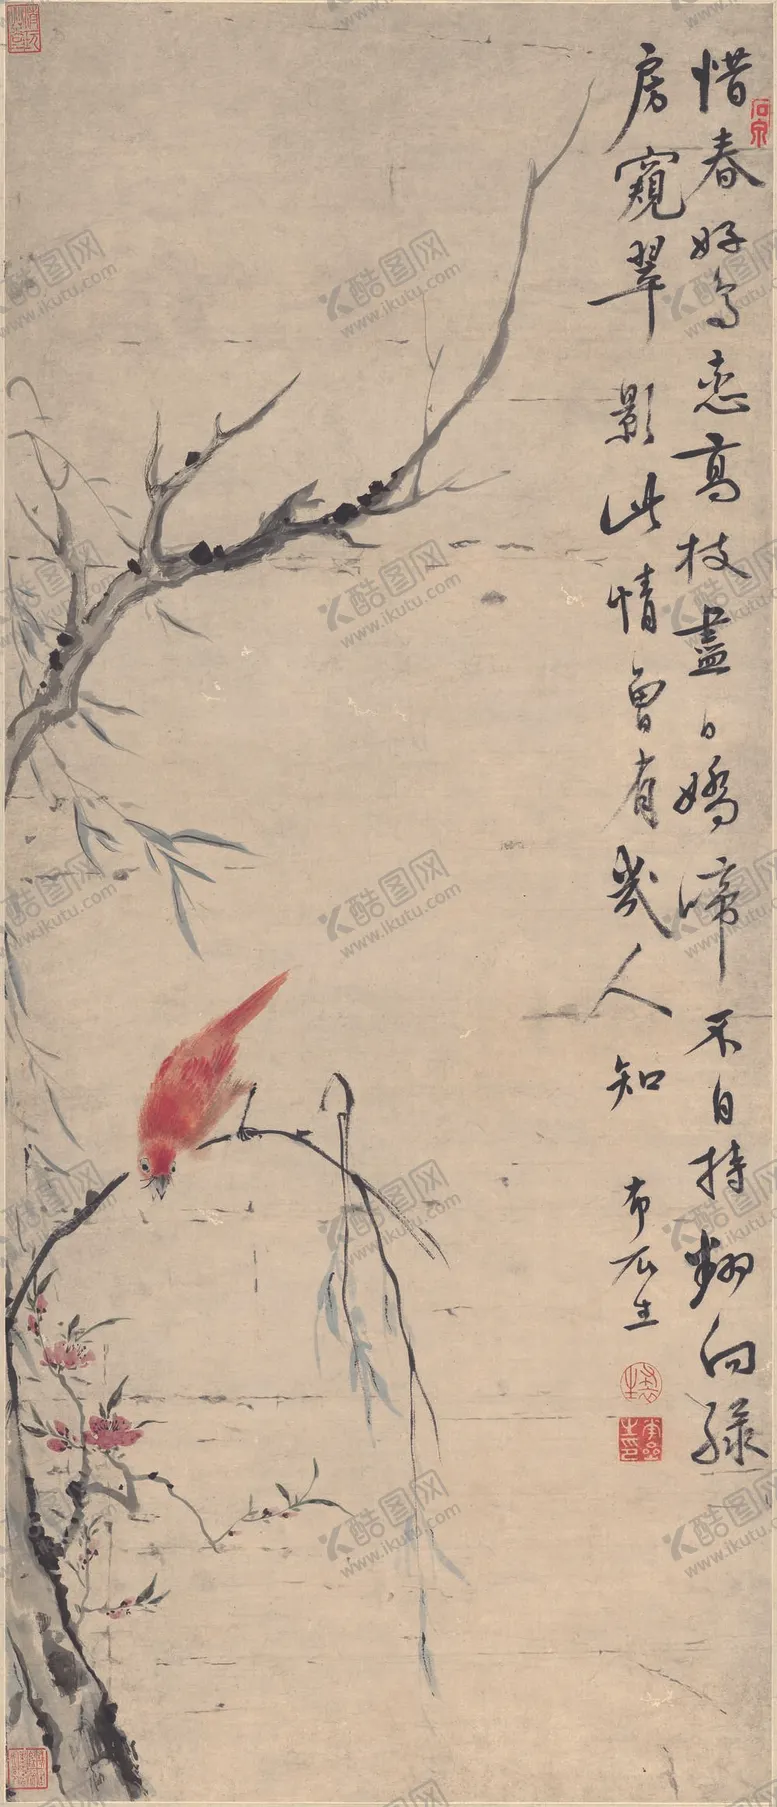 惜春好鳥恋高枝盡日嬌啼不自持翻向綠
房窺翠影此情曾有幾人知
布衣生
石泉
酷图网
www.ikutu.com